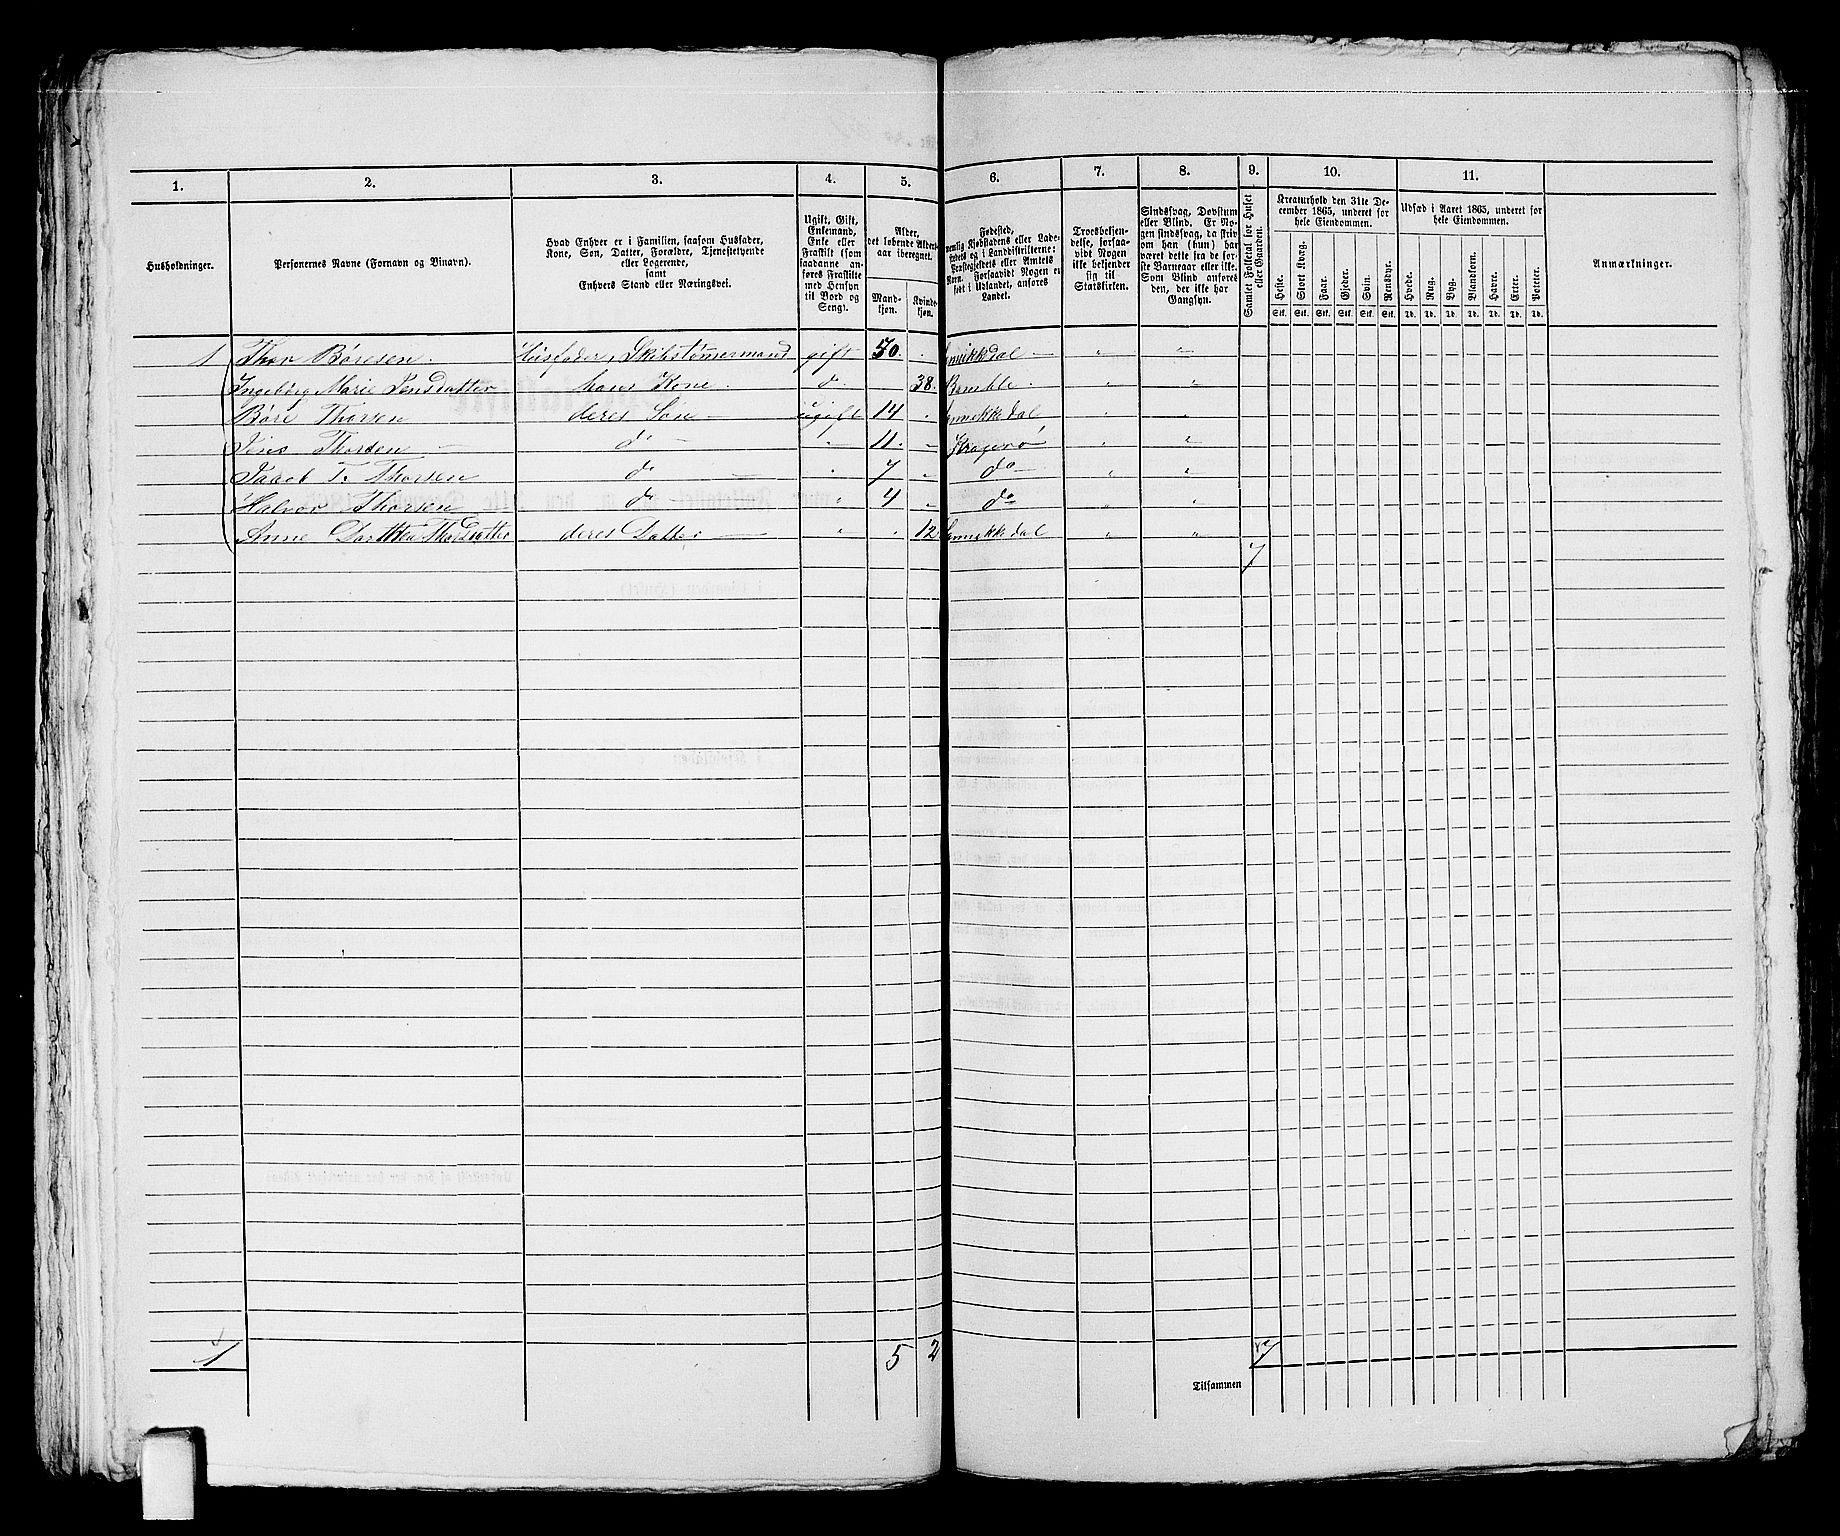 1. 2. 3. 4. 5. 6. 7. 8. 9. 10. 11.
Husholdninger.
Personernes Navne (Fornavn og Tilnavn).
Hvad Enhver er i Familien, saasom Husfader,
Kone, Søn, Datter, Forældre, Tjenestetyende
eller Logerende,
samt
Enhvers Stand eller Næringsvei.
Ugift, Gift,
Enkemand,
Enke eller
Fraskilt (som
saadanne an-
føres Fraskilte
med Hensyn
til Bord og
Seng).
Alder,
det løbende Alders-
aar iberegnet.
Mand-
kjøn.
Kvinde-
kjøn.
Fødested,
nemlig Kjøbstadens eller Lade-
stedets og i Landdistrikterne:
Præstegjeldets eller Amtets
Navn. Forsaavidt Nogen er
født i Udlandet, anføres
Landet.
Troesbekjen-
delse, forsaa-
vidt Nogen
ikke bekjender
sig til
Statskirken.
Sindssvag, Døvstum
eller Blind. Er No-
gen sindssvag, da skriv
om han (hun) har
været dette fra de før-
ste Barneaar eller ikke.
Som Blind anføres
den, der ikke har
Gangsyn.
Samlet Folketal for Huset
eller Gaarden.
Kreaturhold den 31te De-
cember 1865, underet for
hele Eiendommen.
Heste. Stort Kvæg. Faar. Gjeder. Svin. Rensdyr.
Stk. Stk. Stk. Stk. Stk. Stk.
Udsæd i Aaret 1865, underet for
hele Eiendommen.
Hvede. Rug. Byg. Blandkorn. Havre. Erter. Poteter.
Td. Td. Td. Td. Td. Td. Td.
Anmærkninger.
1 Thor Børesen. Huusfader, Skibstømmermand gift 50. Sannikedal " "
Ingeborg Marie Jensdatter hans Kone. do 38. Bamble. " "
Børe Thorsen deres Søn ugift 14 Sannikkedal " "
Jens Thorsen do " 11. Kragerø " "
Jacob T. Thorsen do " 7 " do " "
Halvor Thorsen do " 4 " do " "
Anne Thorsdatter deres Datter " 12 Sannikkedal " "
7
1 5 2 7
Tilsammen